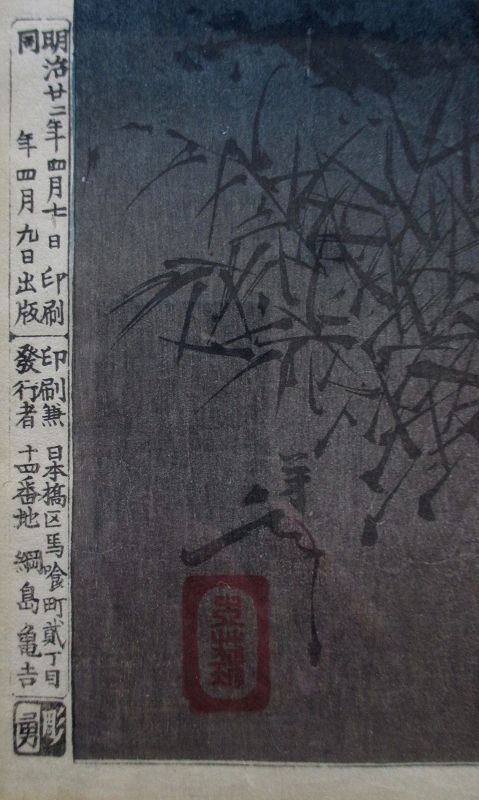 明治廿二年四月七日印刷
同年四月九日出版
印刷兼
發行者
日本橋区馬喰町貳丁目
十四番地 綱島亀吉
彫勇
芳年